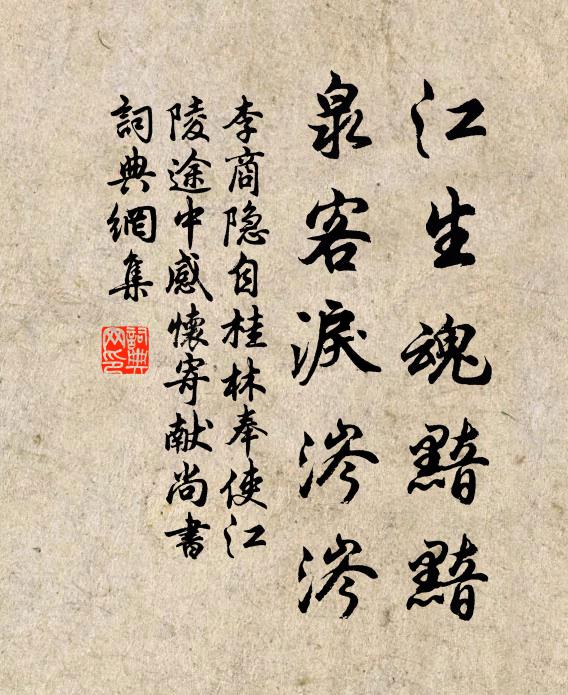 江生魂黯黯
泉客淚涔涔
李商隐自桂林奉使江
陵途中感懷寄献尚書
詞典網集
詞典
网印